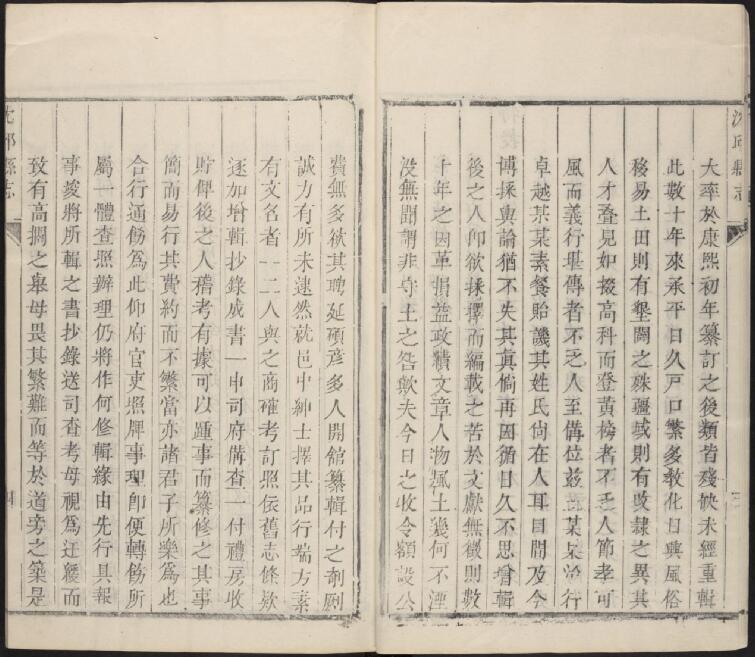 沈邱縣志
三
大率於康熙初年纂訂之後類皆殘缺未經重輯
此數十年來承平日久戸口繁多教化日興風俗
移易土田則有墾闢之殊疆域則有改隸之異其
人才疊見如掇高科而登黃榜者不乏人節孝可
風而義行堪傳者不乏人至備位玆土某某治行
卓越某某素餐貽譏其姓氏尚在人耳目間及今
博採輿論猶不失其真倘再因循日久不思增輯
後之人卽欲採擇而編載之苦於文獻無徵則數
十年之因革損益政績文章人物風土幾何不湮
沒無聞謂非守土之咎歟夫今日之收令額設公
費無多欲其聘延碩彥多人開館纂輯付之剞劂
誠力有所未逮然就邑中紳士擇其品行端方素
有文名者一二人與之商確考訂照依舊志條欵
逐加增輯抄錄成書一申司府備查一付禮房收
貯俾後之人稽考有據可以踵事而纂修之其事
簡而易行其費約而不繁當亦諸君子所樂爲也
合行通飭爲此仰府官吏照牌事理卽便轉飭所
屬一體查照辦理仍將作何修輯緣由先行具報
事竣將所輯之書抄錄送司查考毋視爲迂緩而
致有高擱之舉毋畏其繁難而等於道旁之築是
沈邱縣志
四